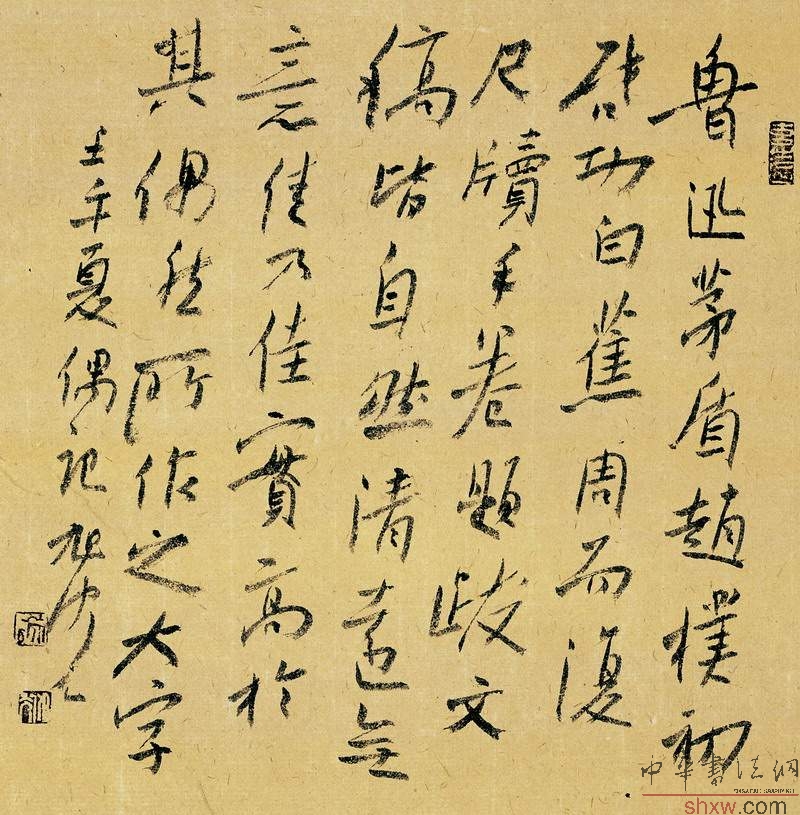 魯迅茅盾趙樸初
啟功白蕉周而復
尺牘手卷題跋文
稿皆自然清遠無
意佳乃佳實高於
其偶然所作之大字
壬午夏偶記
中華書法網
shxw.com